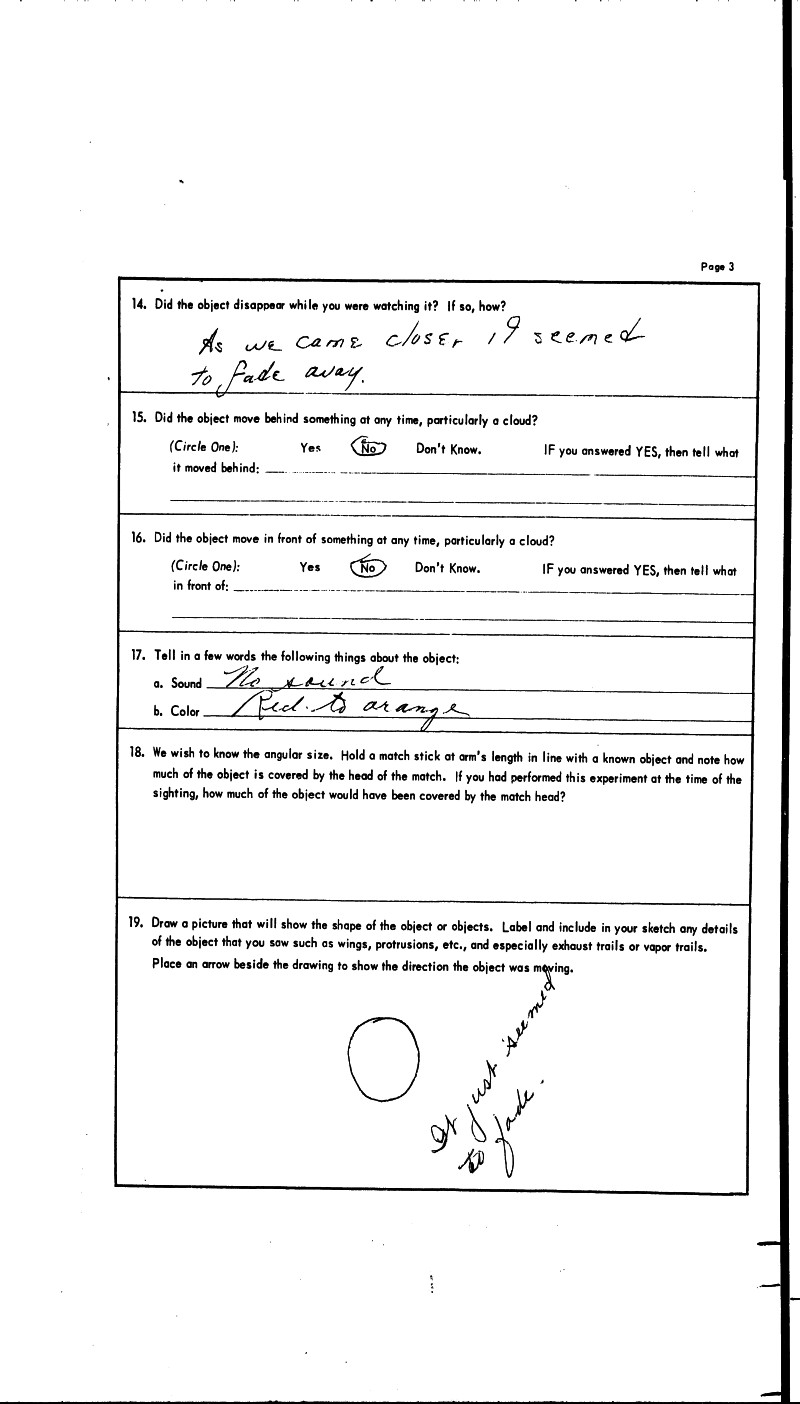 Page 3
14. Did the object disappear while you were watching it? If so, how?
As we came closer it seemed
to fade away.
15. Did the object move behind something at any time, particularly a cloud?
(Circle One): Yes No Don't Know. IF you answered YES, then tell what
it moved behind:
16. Did the object move in front of something at any time, particularly a cloud?
(Circle One): Yes No Don't Know. IF you answered YES, then tell what
in front of:
17. Tell in a few words the following things about the object:
a. Sound No sound
b. Color Red to orange
18. We wish to know the angular size. Hold a match stick at arm's length in line with a known object and note how
much of the object is covered by the head of the match. If you had performed this experiment at the time of the
sighting, how much of the object would have been covered by the match head?
19. Draw a picture that will show the shape of the object or objects. Label and include in your sketch any details
of the object that you saw such as wings, protrusions, etc., and especially exhaust trails or vapor trails.
Place an arrow beside the drawing to show the direction the object was moving.
It just seemed
to fade.